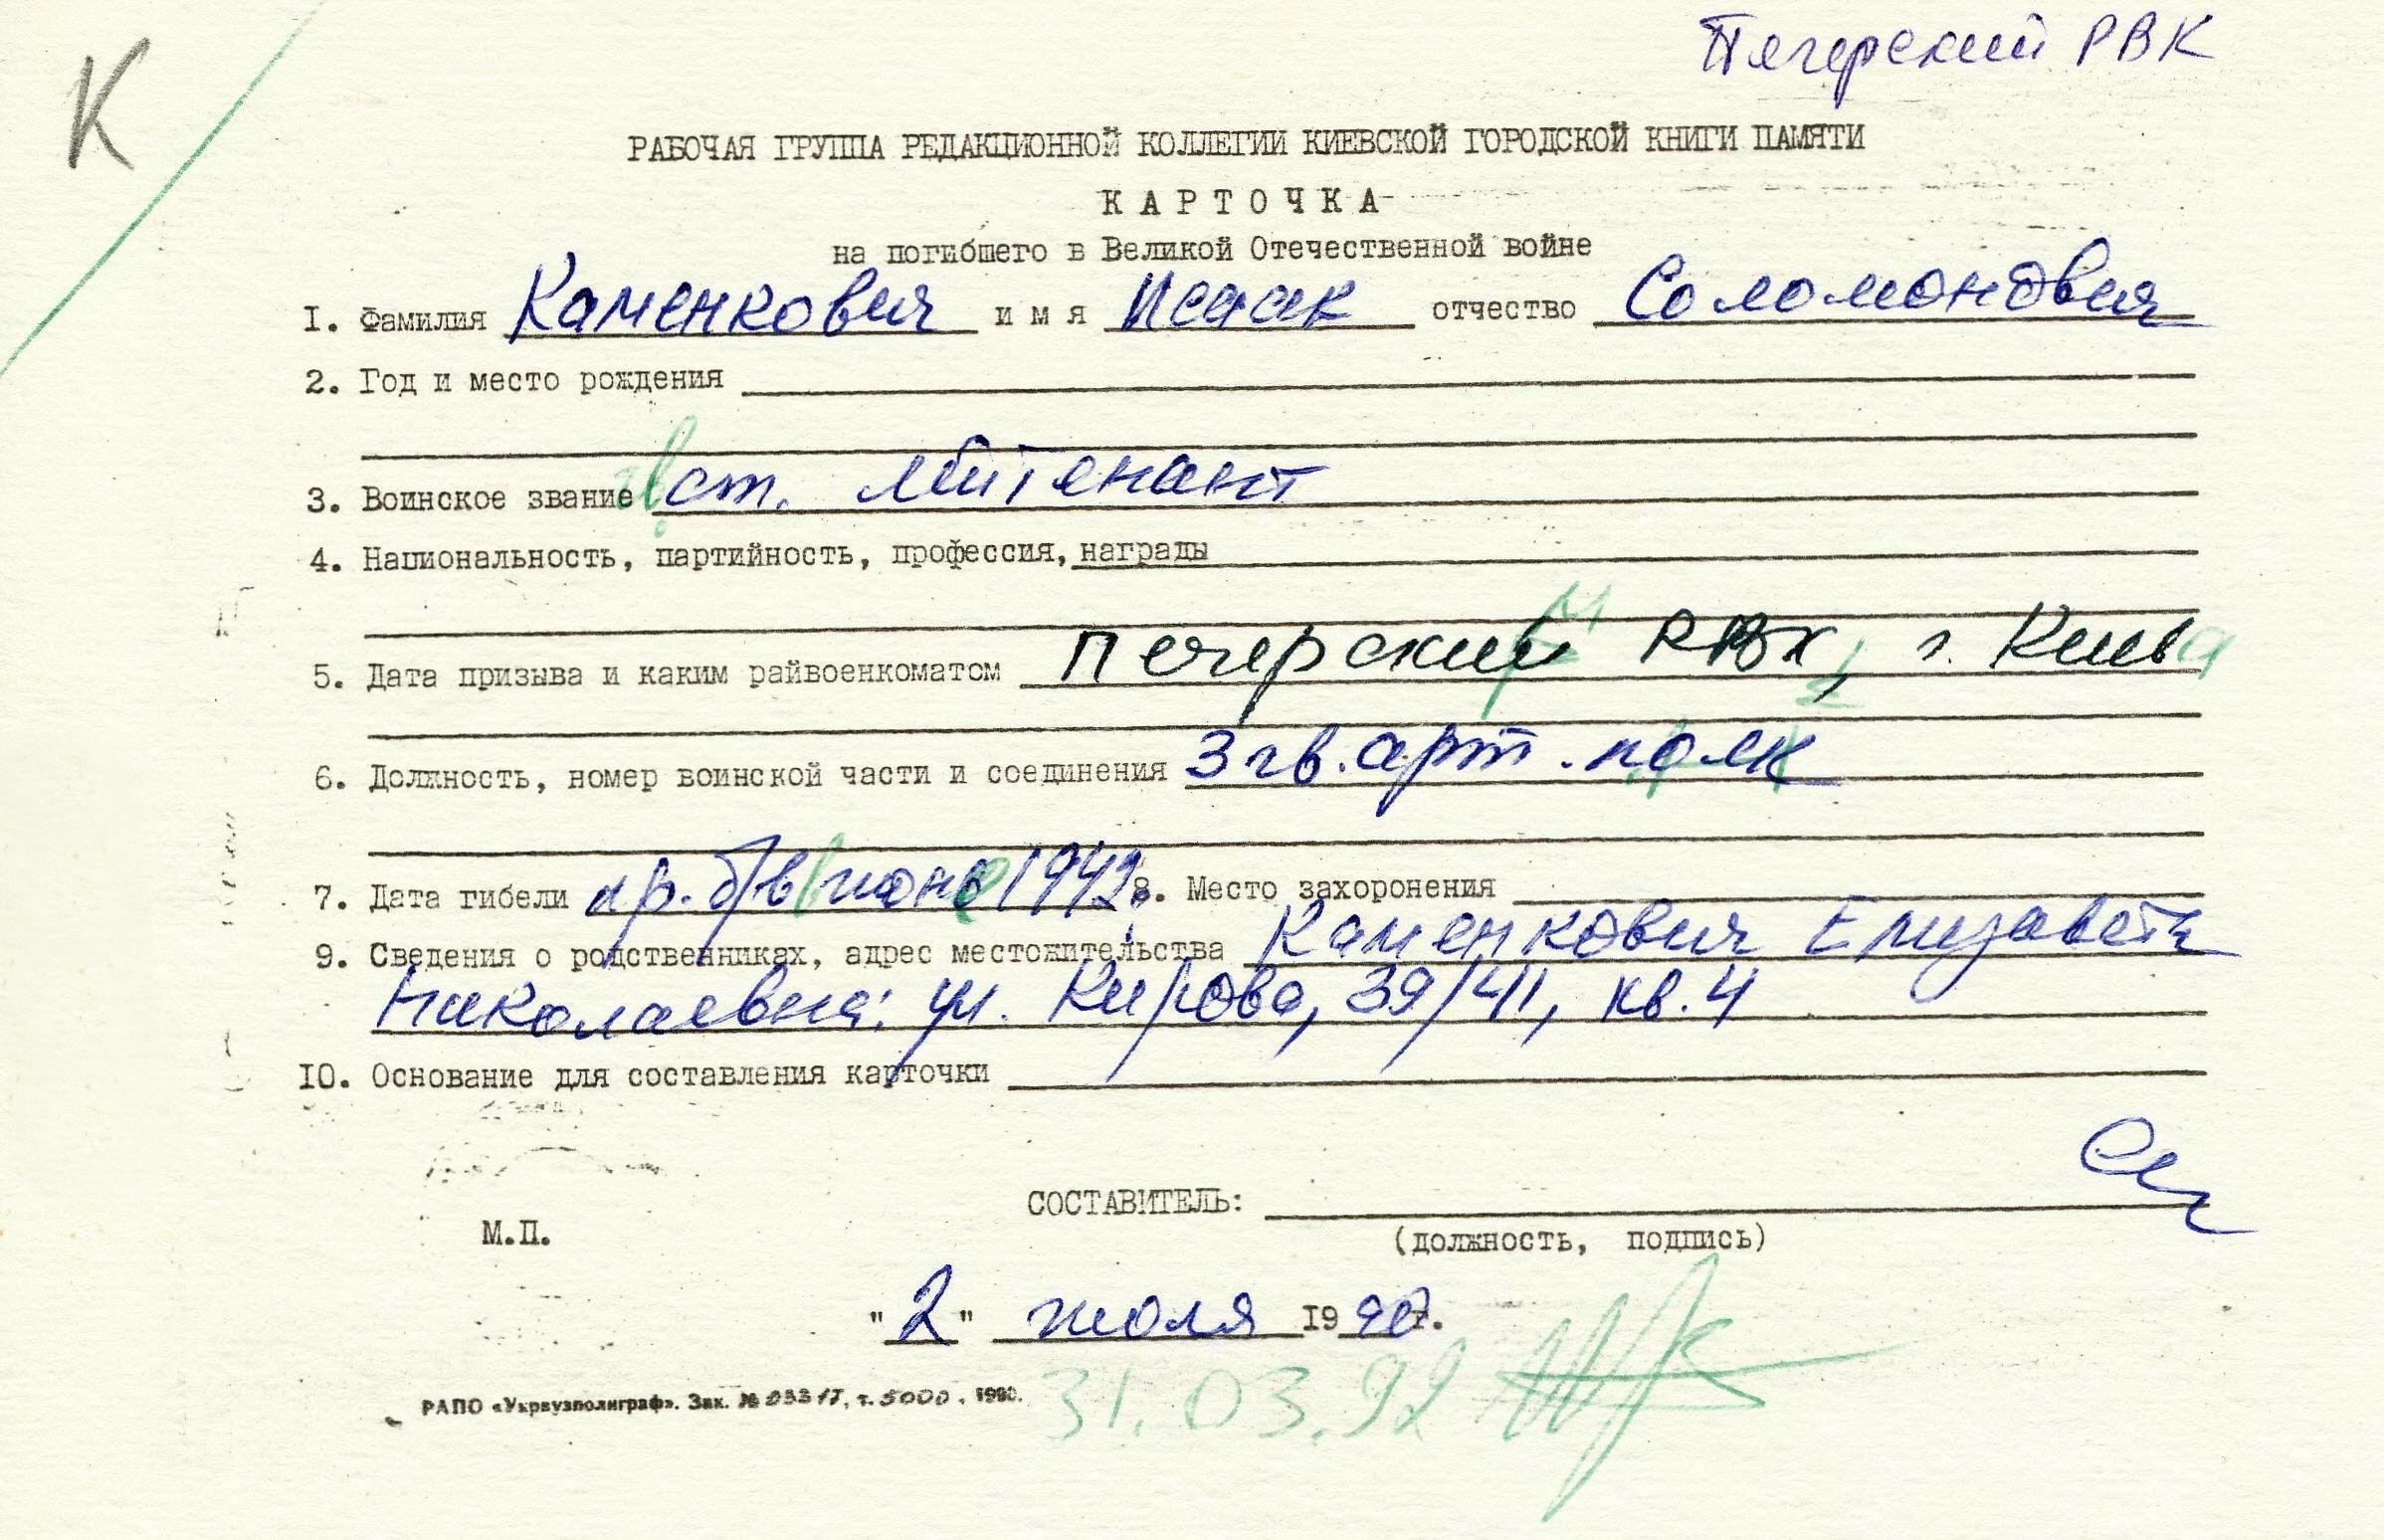 К
Печерский РВК
РАБОЧАЯ ГРУППА РЕДАКЦИОННОЙ КОЛЛЕГИИ КИЕВСКОЙ ГОРОДСКОЙ КНИГИ ПАМЯТИ
КАРТОЧКА
на погибшего в Великой Отечественной войне
I. Фамилия Каменкович имя Исаак отчество Соломонович
2. Год и место рождения
3. Воинское звание ст. лейтенант
4. Национальность, партийность, профессия, награды
5. Дата призыва и каким райвоенкоматом Печерский РВК, г. Киева
6. Должность, номер воинской части и соединения 3 гв. арт. полк
7. Дата гибели пр. б/в июне 1942. 8. Место захоронения
9. Сведения о родственниках, адрес местожительства Каменкович Елизавета
Николаевна: ул. Кирова, 39/41, кв. 4
IO. Основание для составления карточки
СОСТАВИТЕЛЬ:
М.П. (должность, подпись)
"2" июля 1990г.
31.03.92
РАПО «Укрвузполиграф». Зак. № т. 5000. 1990.